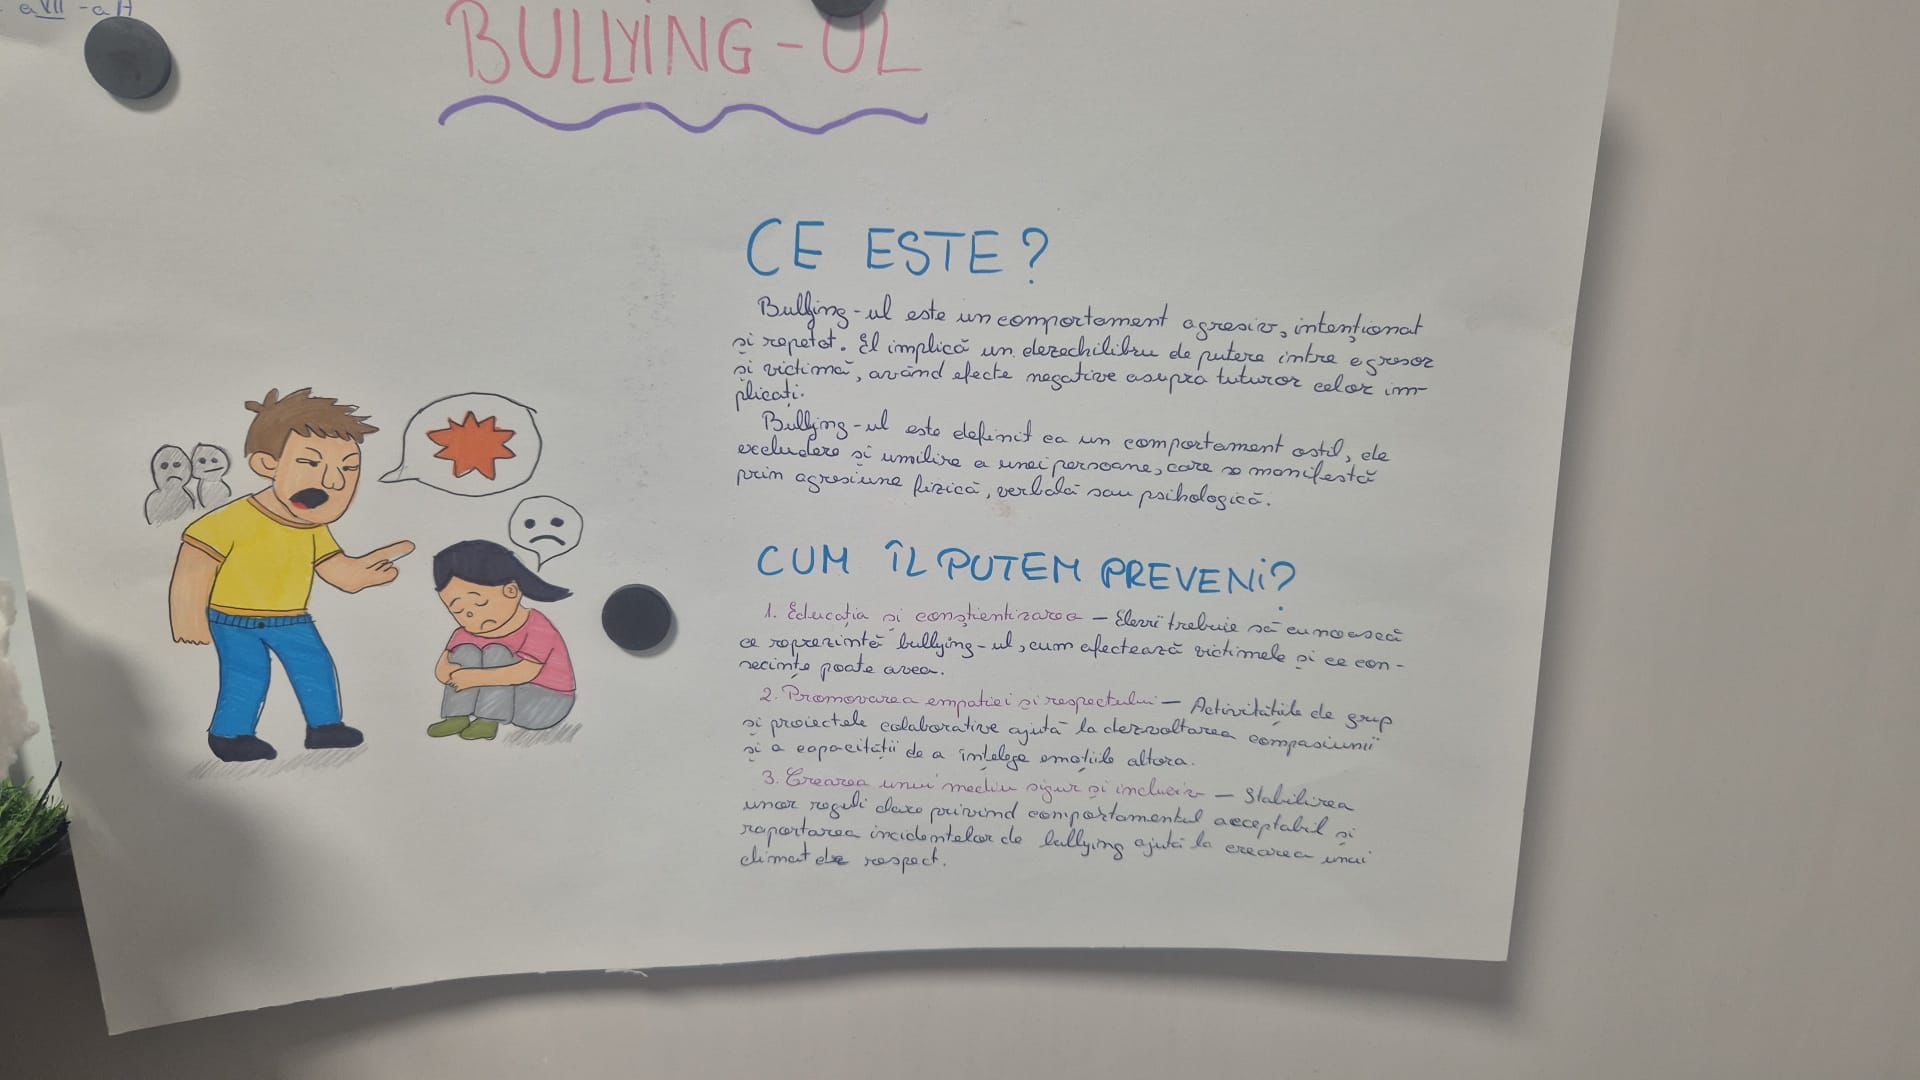 a VII-a A
BULLYING-UL
CE ESTE?
Bullying-ul este un comportament agresiv, intenționat
și repetat. El implică un dezechilibru de putere între agresor
și victimă, având efecte negative asupra tuturor celor im-
plicați.
Bullying-ul este definit ca un comportament ostil, de
excludere și umilire a unei persoane, care se manifestă
prin agresiune fizică, verbală sau psihologică.
CUM ÎL PUTEM PREVENI?
1. Educația și conștientizarea - Elevii trebuie să cunoască
ce reprezintă bullying-ul, cum afectează victimele și ce con-
secințe poate avea.
2. Promovarea empatiei și respectului - Activitățile de grup
și proiectele colaborative ajută la dezvoltarea compasiunii
și a capacității de a înțelege emoțiile altora.
3. Crearea unui mediu sigur și incluziv - Stabilirea
unor reguli clare privind comportamentul acceptabil și
raportarea incidentelor de bullying ajută la crearea unui
climat de respect.